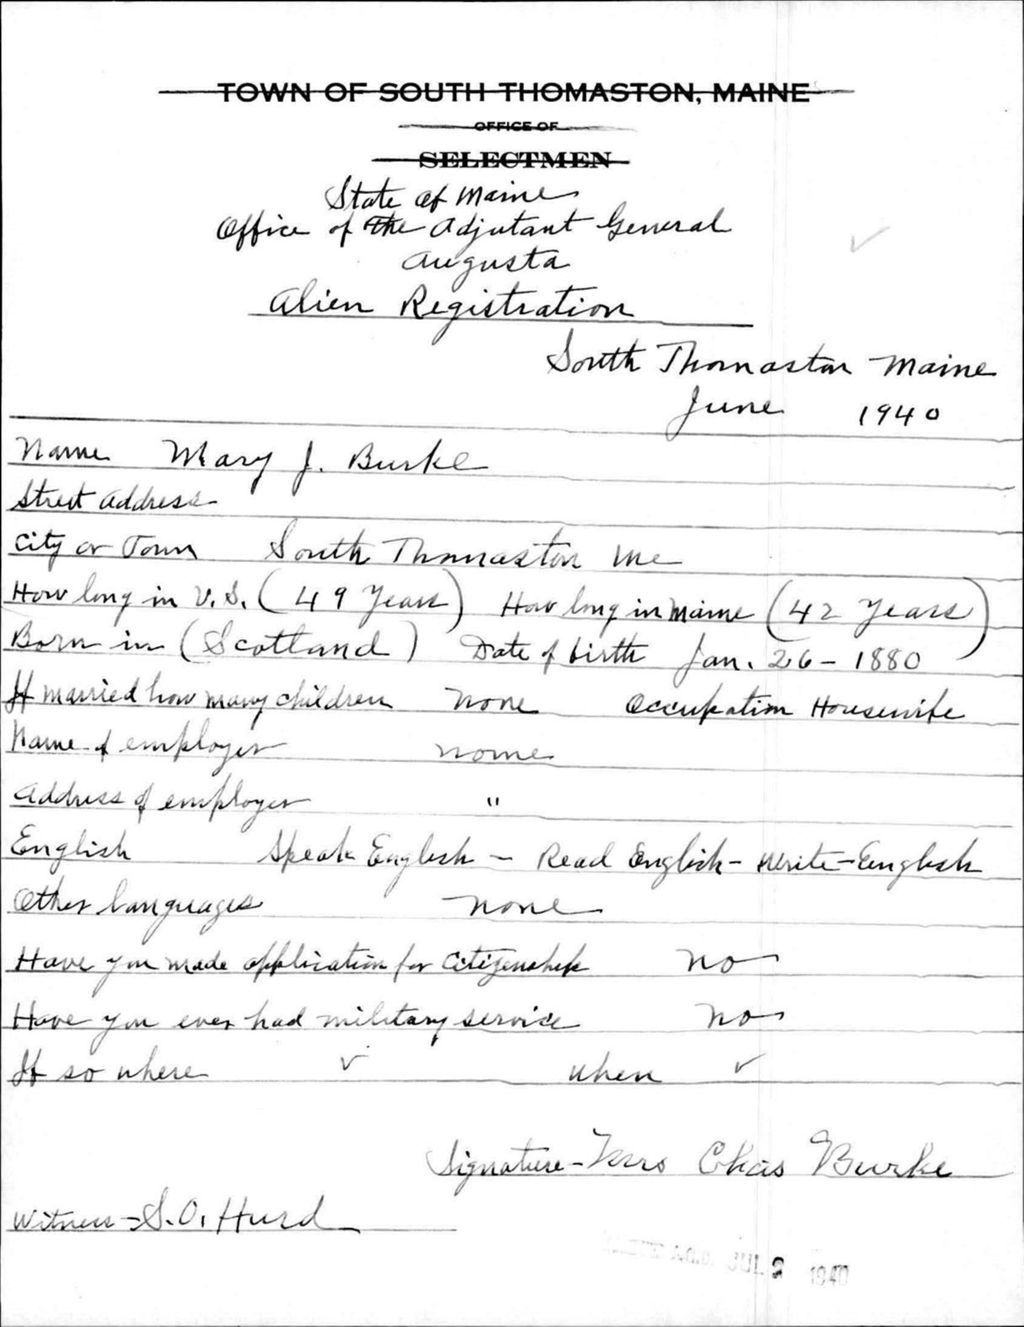 TOWN OF SOUTH THOMASTON, MAINE
OFFICE OF
SELECTMEN
State of Maine
Office of the Adjutant General
Augusta
Alien Registration
South Thomaston Maine
June 1940
Name Mary J. Burke
Street address
City or Town South Thomaston Me
How long in U.S. (49 Years) How long in Maine (42 Years)
Born in (Scotland) Date of birth Jan. 26 - 1880
If married how many children none Occupation Housewife
Name of employer none
Address of employer "
English Speak English - Read English - Write - English
Other languages none
Have you made application for Citizenship No
Have you ever had military service No
If so where ✓ when ✓
Signature - Mrs Chas Burke
Witness - S. O. Hurd
A.G.O. JUL 2 1940